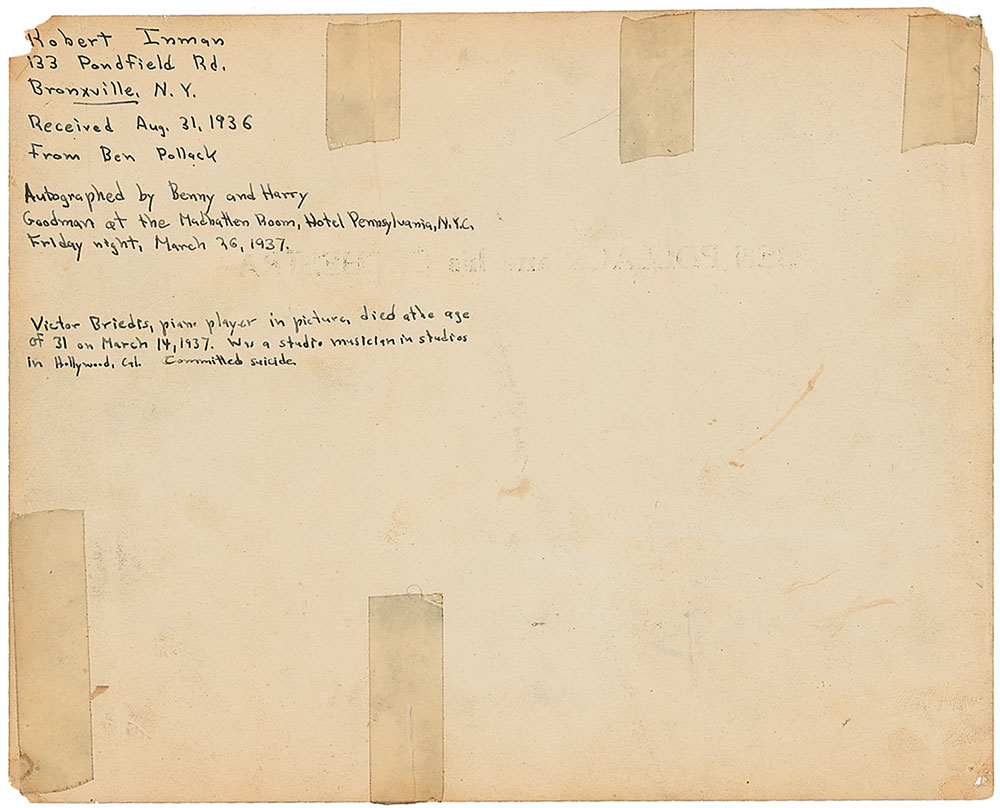 Robert Inman
133 Pondfield Rd.
Bronxville, N.Y.
Received Aug. 31, 1936
From Ben Pollack
Autographed by Benny and Harry
Goodman at the Madhatten Room, Hotel Pennsylvania, N.Y.C.
Friday night, March 26, 1937.
BEN POLLACK and his ORCHESTRA
Victor Briedis, piano player in picture, died athe age
of 31 on March 14, 1937. Was a studio musician in studios
in Hollywood, Cal. Committed suicide.